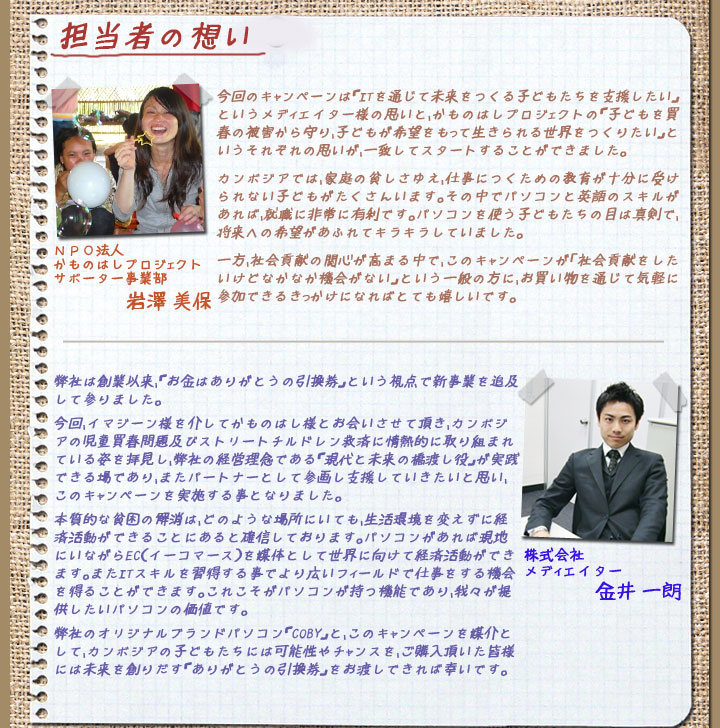 担当者の想い
今回のキャンペーンは『ITを通じて未来をつくる子どもたちを支援したい』
というメディエイター様の思いと、かものはしプロジェクトの『子どもを買
春の被害から守り、子どもが希望をもって生きられる世界をつくりたい』と
いうそれぞれの思いが、一致してスタートすることができました。
カンボジアでは、家庭の貧しさゆえ、仕事につくための教育が十分に受け
られない子どもがたくさんいます。その中でパソコンと英語のスキルが
あれば、就職に非常に有利です。パソコンを使う子どもたちの目は真剣で、
将来への希望があふれてキラキラしていました。
一方、社会貢献の関心が高まる中で、このキャンペーンが「社会貢献をした
いけどなかなか機会がない』という一般の方に、お買い物を通じて気軽に
参加できるきっかけになればとても嬉しいです。
NPO法人
かものはしプロジェクト
サポーター事業部
岩澤 美保
弊社は創業以来、『お金はありがとうの引換券』という視点で新事業を追及
して参りました。
今回、イマジーン様を介してかものはし様とお会いさせて頂き、カンボジ
アの児童買春問題及びストリートチルドレン救済に情熱的に取り組まれ
ている姿を拝見し、弊社の経営理念である『現代と未来の橋渡し役』が実践
できる場であり、またパートナーとして参画し支援していきたいと思い、
このキャンペーンを実施する事となりました。
本質的な貧困の解消は、どのような場所にいても、生活環境を変えずに経
済活動ができることにあると確信しております。パソコンがあれば現地
にいながらEC(イーコマース)を媒体として世界に向けて経済活動ができ
ます。またITスキルを習得する事でより広いフィールドで仕事をする機会
を得ることができます。これこそがパソコンが持つ機能であり、我々が提
供したいパソコンの価値です。
弊社のオリジナルブランドパソコン『COBY』と、このキャンペーンを媒介と
して、カンボジアの子どもたちには可能性やチャンスを、ご購入頂いた皆様
には未来を創りだす『ありがとうの引換券』をお渡しできれば幸いです。
株式会社
メディエイター
金井 一朗